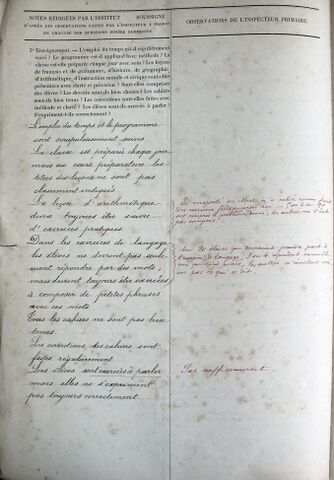 NOTES RÉDIGÉES PAR L'INSTITUT SOUSSIGNÉ
D'APRÈS LES OBSERVATIONS FAITES PAR L'INSPECTEUR A PROPOS
DE CHACUNE DES QUESTIONS POSÉES CI-DESSOUS
OBSERVATIONS DE L'INSPECTEUR PRIMAIRE.
3° Enseignement. — L'emploi du temps est-il régulièrement
suivi ? Le programme est-il appliqué avec méthode ? La
classe est-elle préparée chaque jour avec soin ? Les leçons
de français et de grammaire, d'histoire, de géographie,
d'arithmétique, d'instruction morale et civique sont-elles
présentées avec clarté et précision ? Sont-elles comprises
des élèves ? Les devoirs sont-ils bien choisis ? Les cahiers
sont-ils bien tenus ? Les corrections sont-elles faites avec
méthode et clarté ? Les élèves sont-ils exercés à parler ?
S'expriment-ils correctement ?
L'emploi du temps et le programme
sont scrupuleusement suivis
La classe est préparée chaque jour
mais au cours préparatoire les
titres des leçons ne sont pas
clairement indiqués
La leçon d'arithmétique
devra toujours être suivie
d'exercices pratiques.
Dans les exercices de langage
les élèves ne devront pas seule-
ment répondre par des mots,
mais devront toujours être exercées
à composer de petites phrases
avec ces mots
Tous les cahiers ne sont pas bien
tenus.
Les corrections des cahiers sont
faites régulièrement
Les élèves sont exercées à parler
mais elles ne s'expriment
pas toujours correctement.
La majorité des élèves n'a
pas
Sur 20 élèves qui devraient prendre part à
l'exercice de langage, 3 ou 4 répondent
Pas suffisamment.